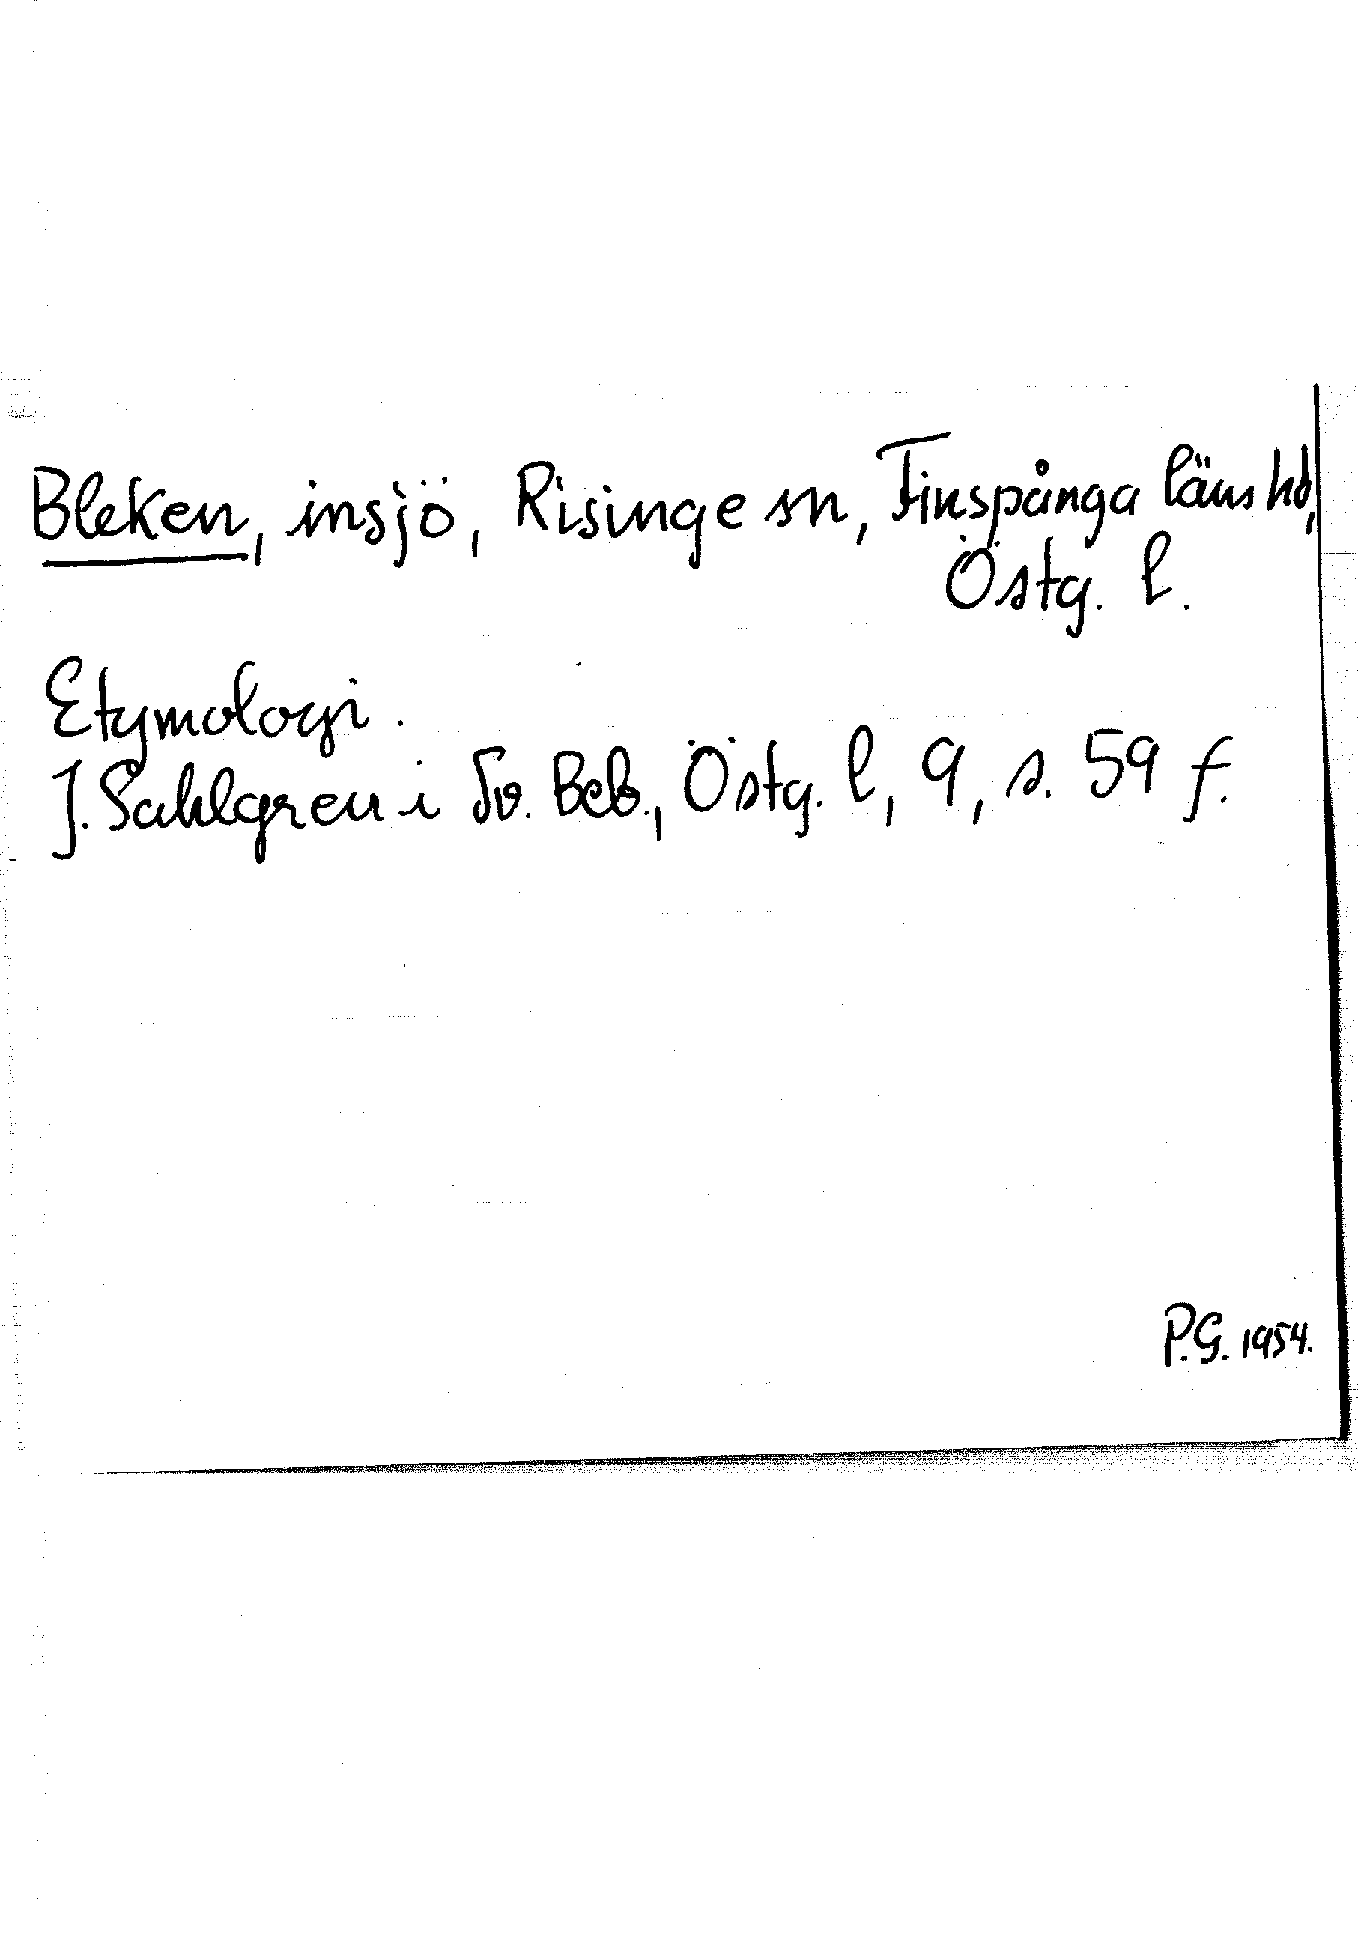 Bleken, insjö, Risinge sn, Finspånga läns hd,
Östg. l.
Etymologi.
J. Sahlgren i Sv. Beb., Östg. l, 9, s. 59 f.
P.G. 1954.